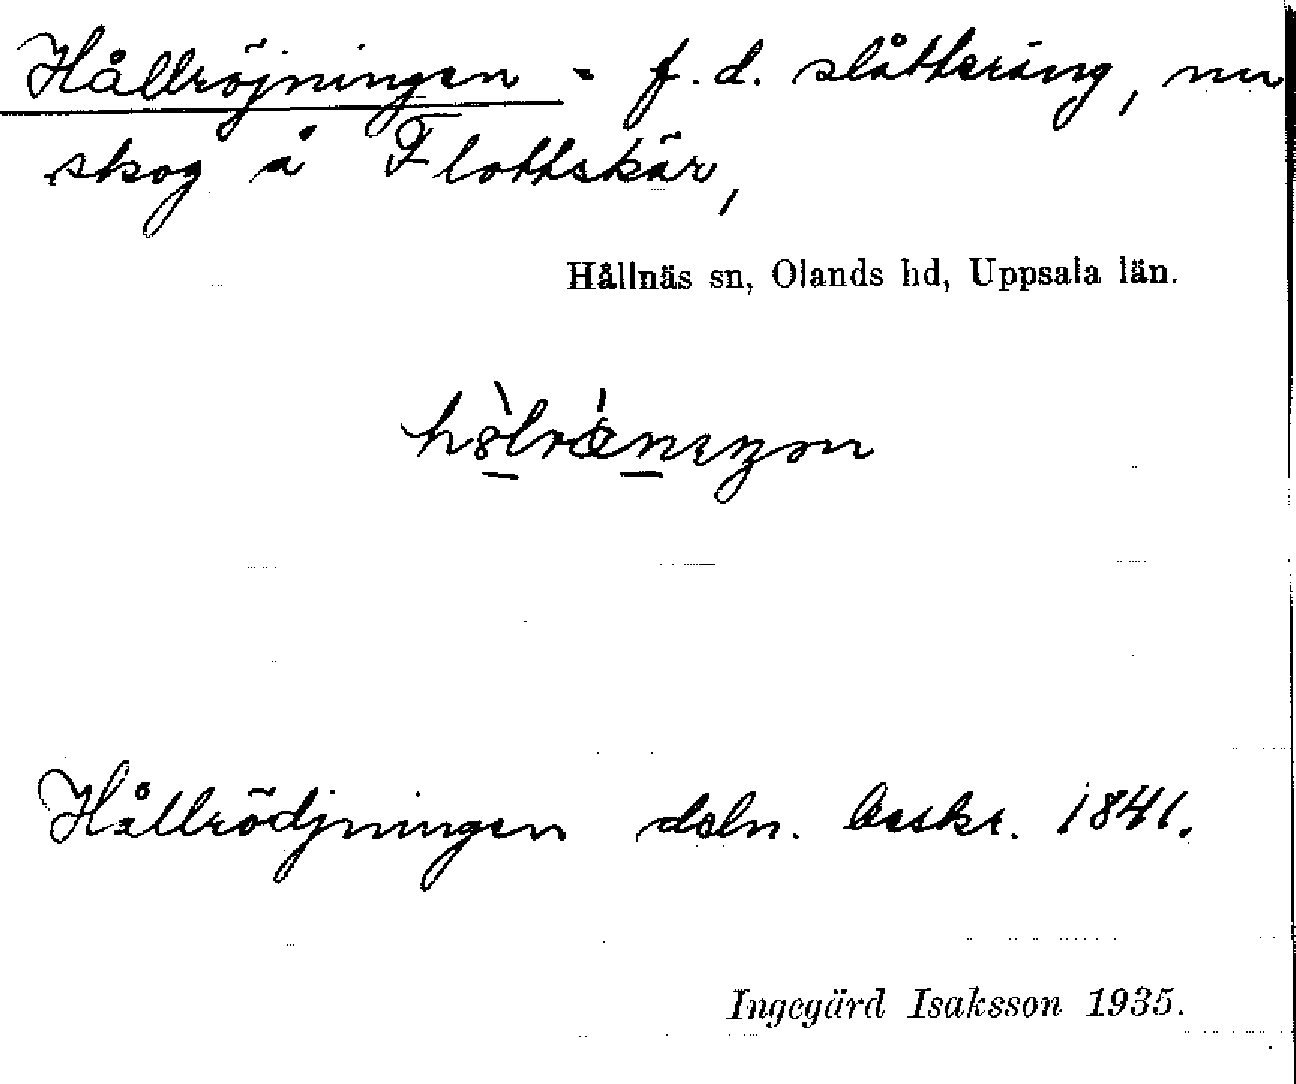 Hållröjningen = f.d. slåtteräng, nu
skog å Flottskär,
Hållnäs sn, Olands hd, Uppsala län.
Hållrödjningen deln. beskr. 1841.
Ingegärd Isaksson 1935.